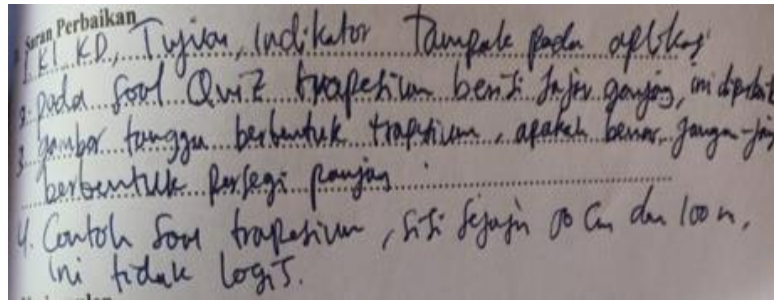 Saran Perbaikan
1. KI KD, Tujuan, Indikator Tampak pada aplikasi
2. pada soal Quiz trapesium berisi sejajar ganjang, ini diperbaiki
3. gambar tangga berbentuk trapesium, apakah benar jangan-jan
berbentuk persegi panjang
4. Contoh soal trapesium, sisi sejajar cm dan 100 m,
ini tidak logis.